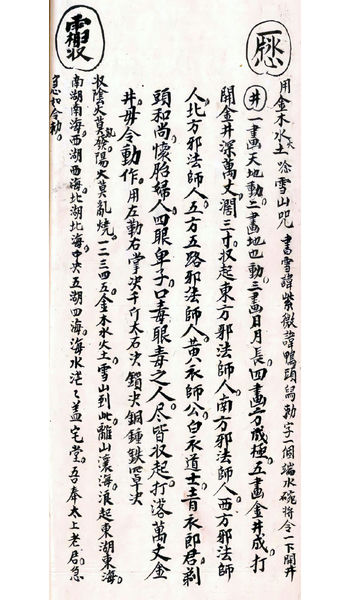 用金木水火土唸雪山咒 書雪諱紫微諱鴨頭符勅字一個端水碗將令一下開井
井 一畫天地動。二畫地也動。三畫日月長。四畫方成極。五畫金井成。打
開金井深萬丈。濶三寸。收起東方邪法師人。南方邪法師人。西方邪法師
人。北方邪法師人。五方五路邪法師人。黃衣師公。白衣道士。青衣郎君。剃
頭和尚。懷胎婦人。四眼卑子。口毒眼毒之人。尽皆收起。打落萬丈金
井。毋令動作。用左動右掌决千斤大石决 鎖决銅鍾䥫罩决
收陰火莫發陽火莫亂燒。一二三四五。金木水火土。雪山到此。離山瀼海浪起東湖東海。
南湖南海。西湖西海。北湖北海。中央五湖四海。海水茫々盖宅堂。吾奉太上老君。急
急如令勅。